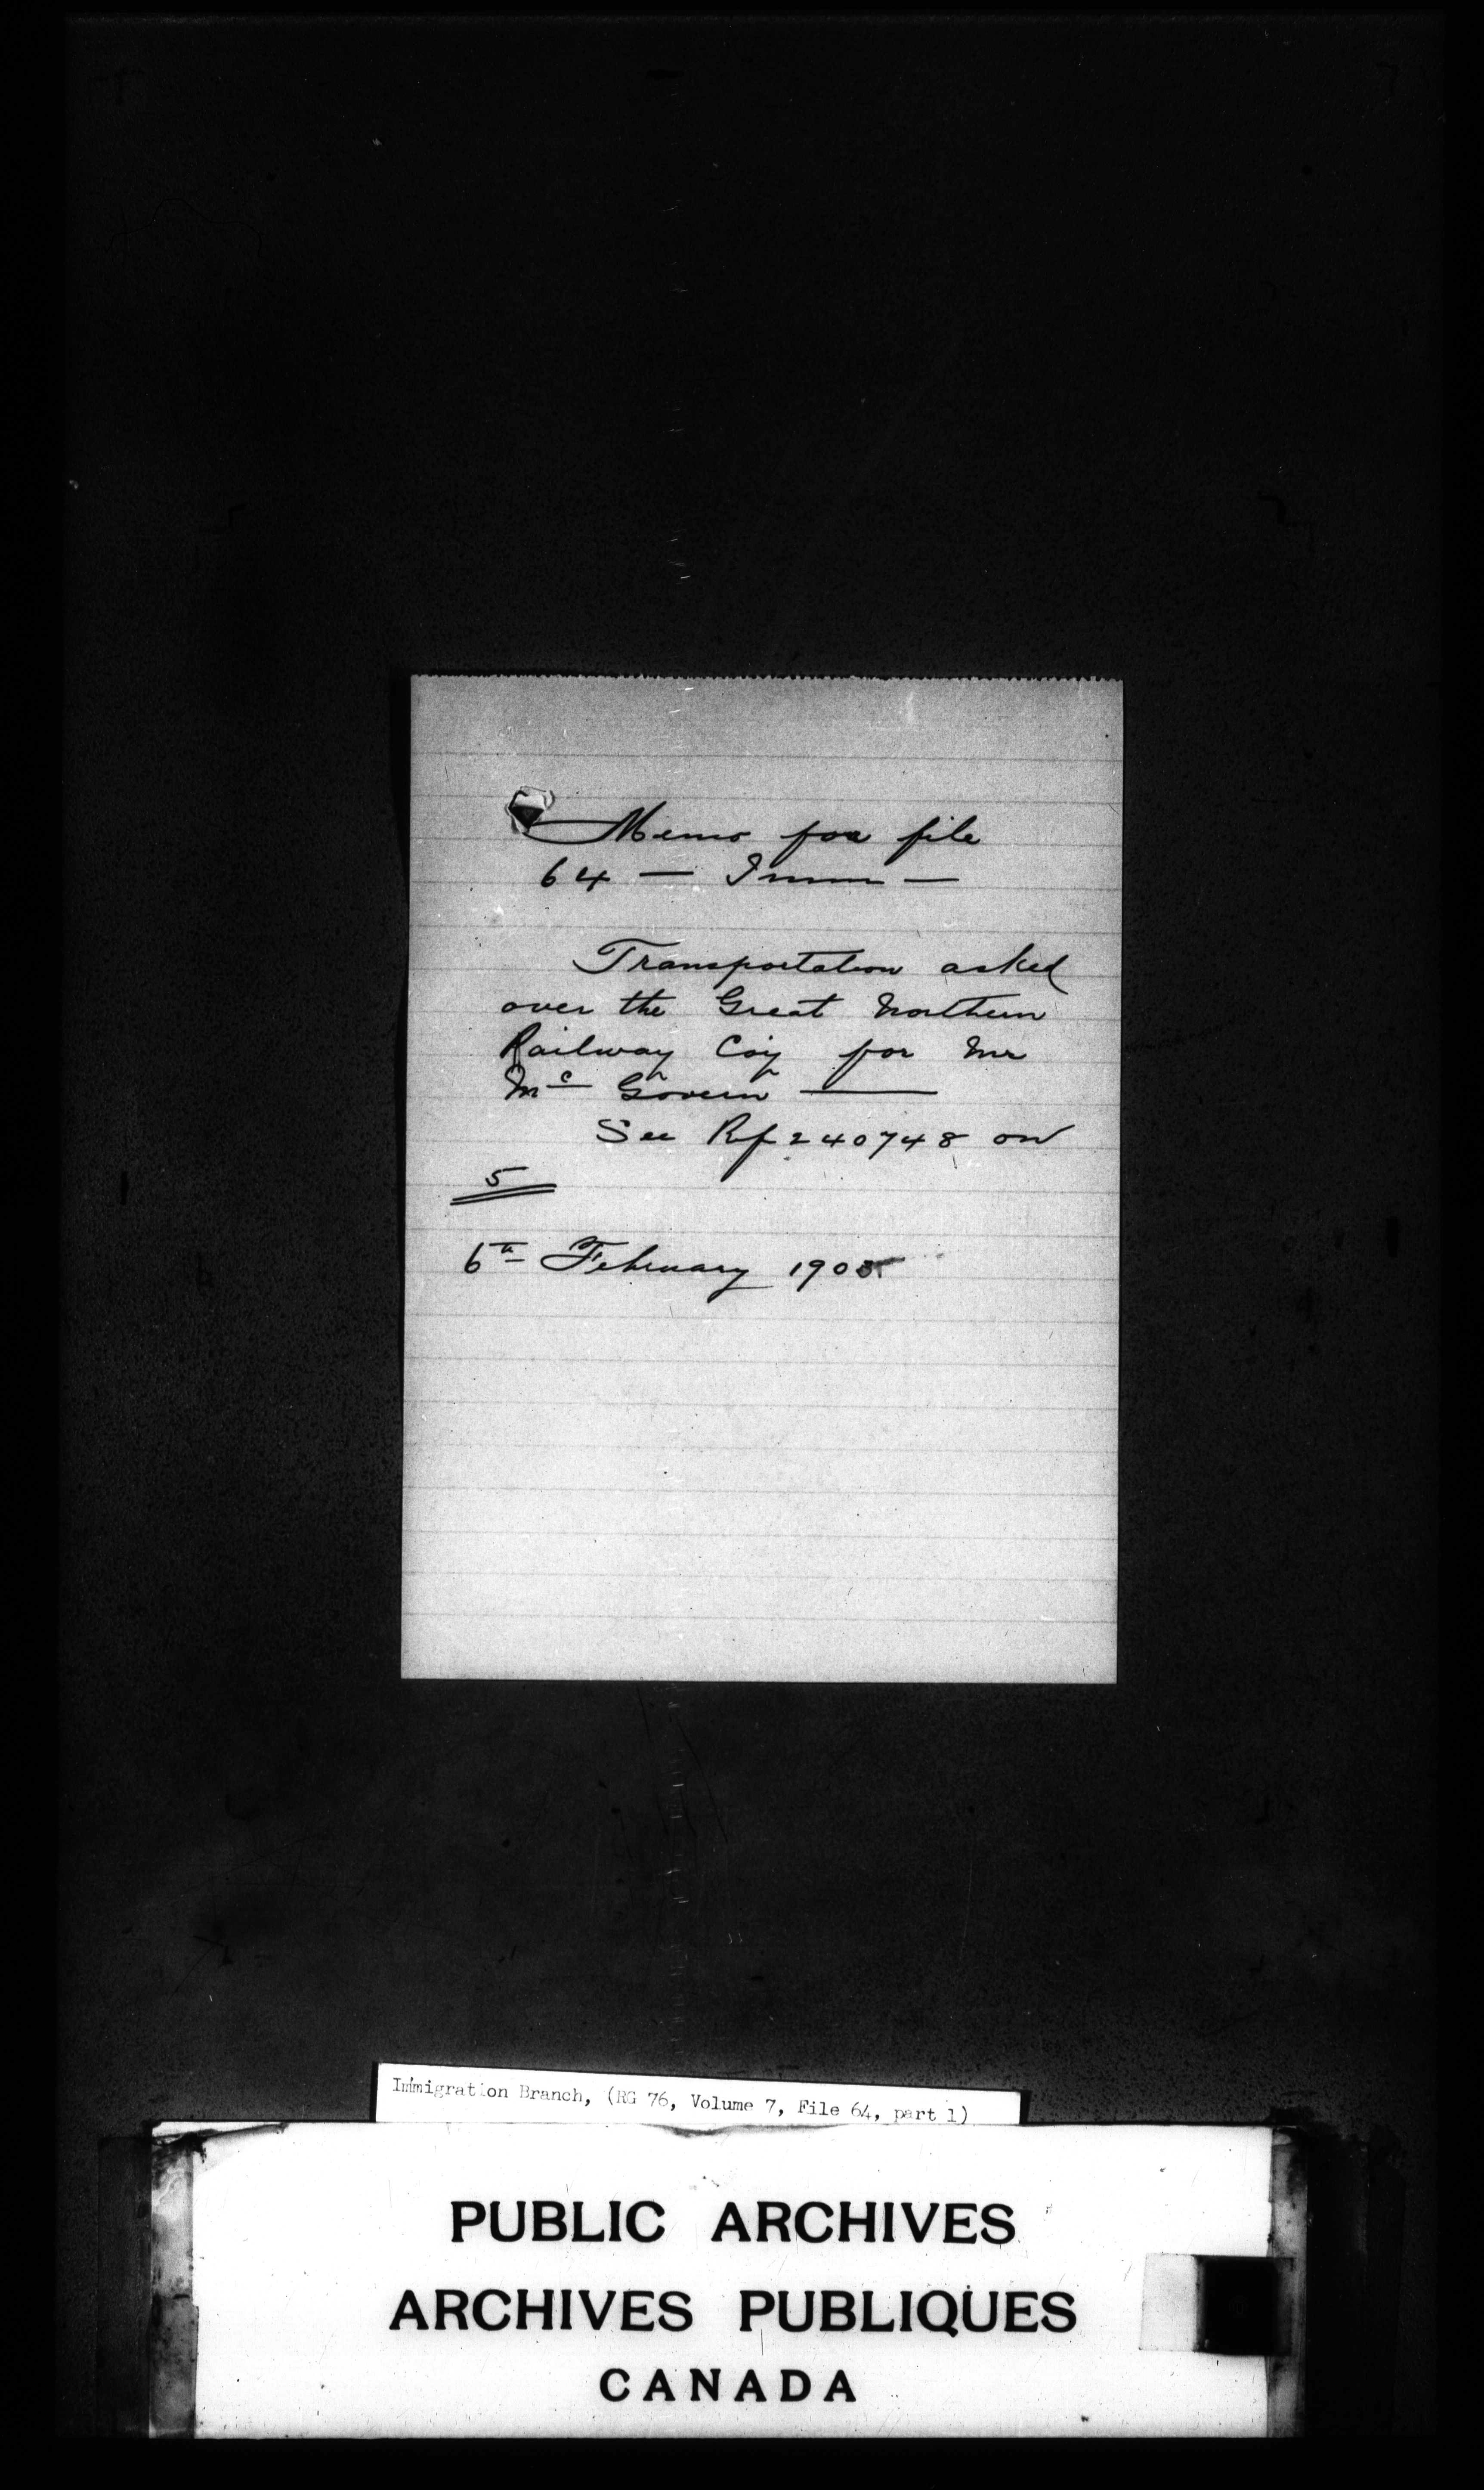 Memo for file
64 — Imm —
Transportation asked
over the Great Northern
Railway Coy for Mr
Mc Govern —
See Ref 240748 on
5
6th February 1905
Immigration Branch, (RG 76, Volume 7, File 64, part 1)
PUBLIC ARCHIVES
ARCHIVES PUBLIQUES
CANADA